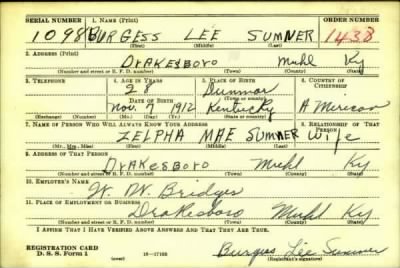 SERIAL NUMBER 1. NAME (Print) ORDER NUMBER
1098 BURGESS LEE SUMNER 1438
(First) (Middle) (Last)
2. ADDRESS (Print)
Drakesboro Muhl Ky
(Number and street or R. F. D. number) (Town) (County) (State)
3. TELEPHONE 4. AGE IN YEARS 5. PLACE OF BIRTH 6. COUNTRY OF CITIZENSHIP
28 Dunmor
DATE OF BIRTH (Town or county)
Nov. 7 1912 Kentucky American
(Exchange) (Number) (Mo.) (Day) (Yr.) (State or country)
7. NAME OF PERSON WHO WILL ALWAYS KNOW YOUR ADDRESS 8. RELATIONSHIP OF THAT PERSON
ZELPHA MAE SUMNER Wife
(Mr., Mrs., Miss) (First) (Middle) (Last)
9. ADDRESS OF THAT PERSON
Drakesboro Muhl Ky
(Number and street or R. F. D. number) (Town) (County) (State)
10. EMPLOYER'S NAME
W. W. Bridges
11. PLACE OF EMPLOYMENT OR BUSINESS
Drakesboro Muhl Ky
(Number and street or R. F. D. number) (Town) (County) (State)
I AFFIRM THAT I HAVE VERIFIED ABOVE ANSWERS AND THAT THEY ARE TRUE.
REGISTRATION CARD
D. S. S. Form 1 (over) Burgess Lee Sumner
(Registrant's signature)